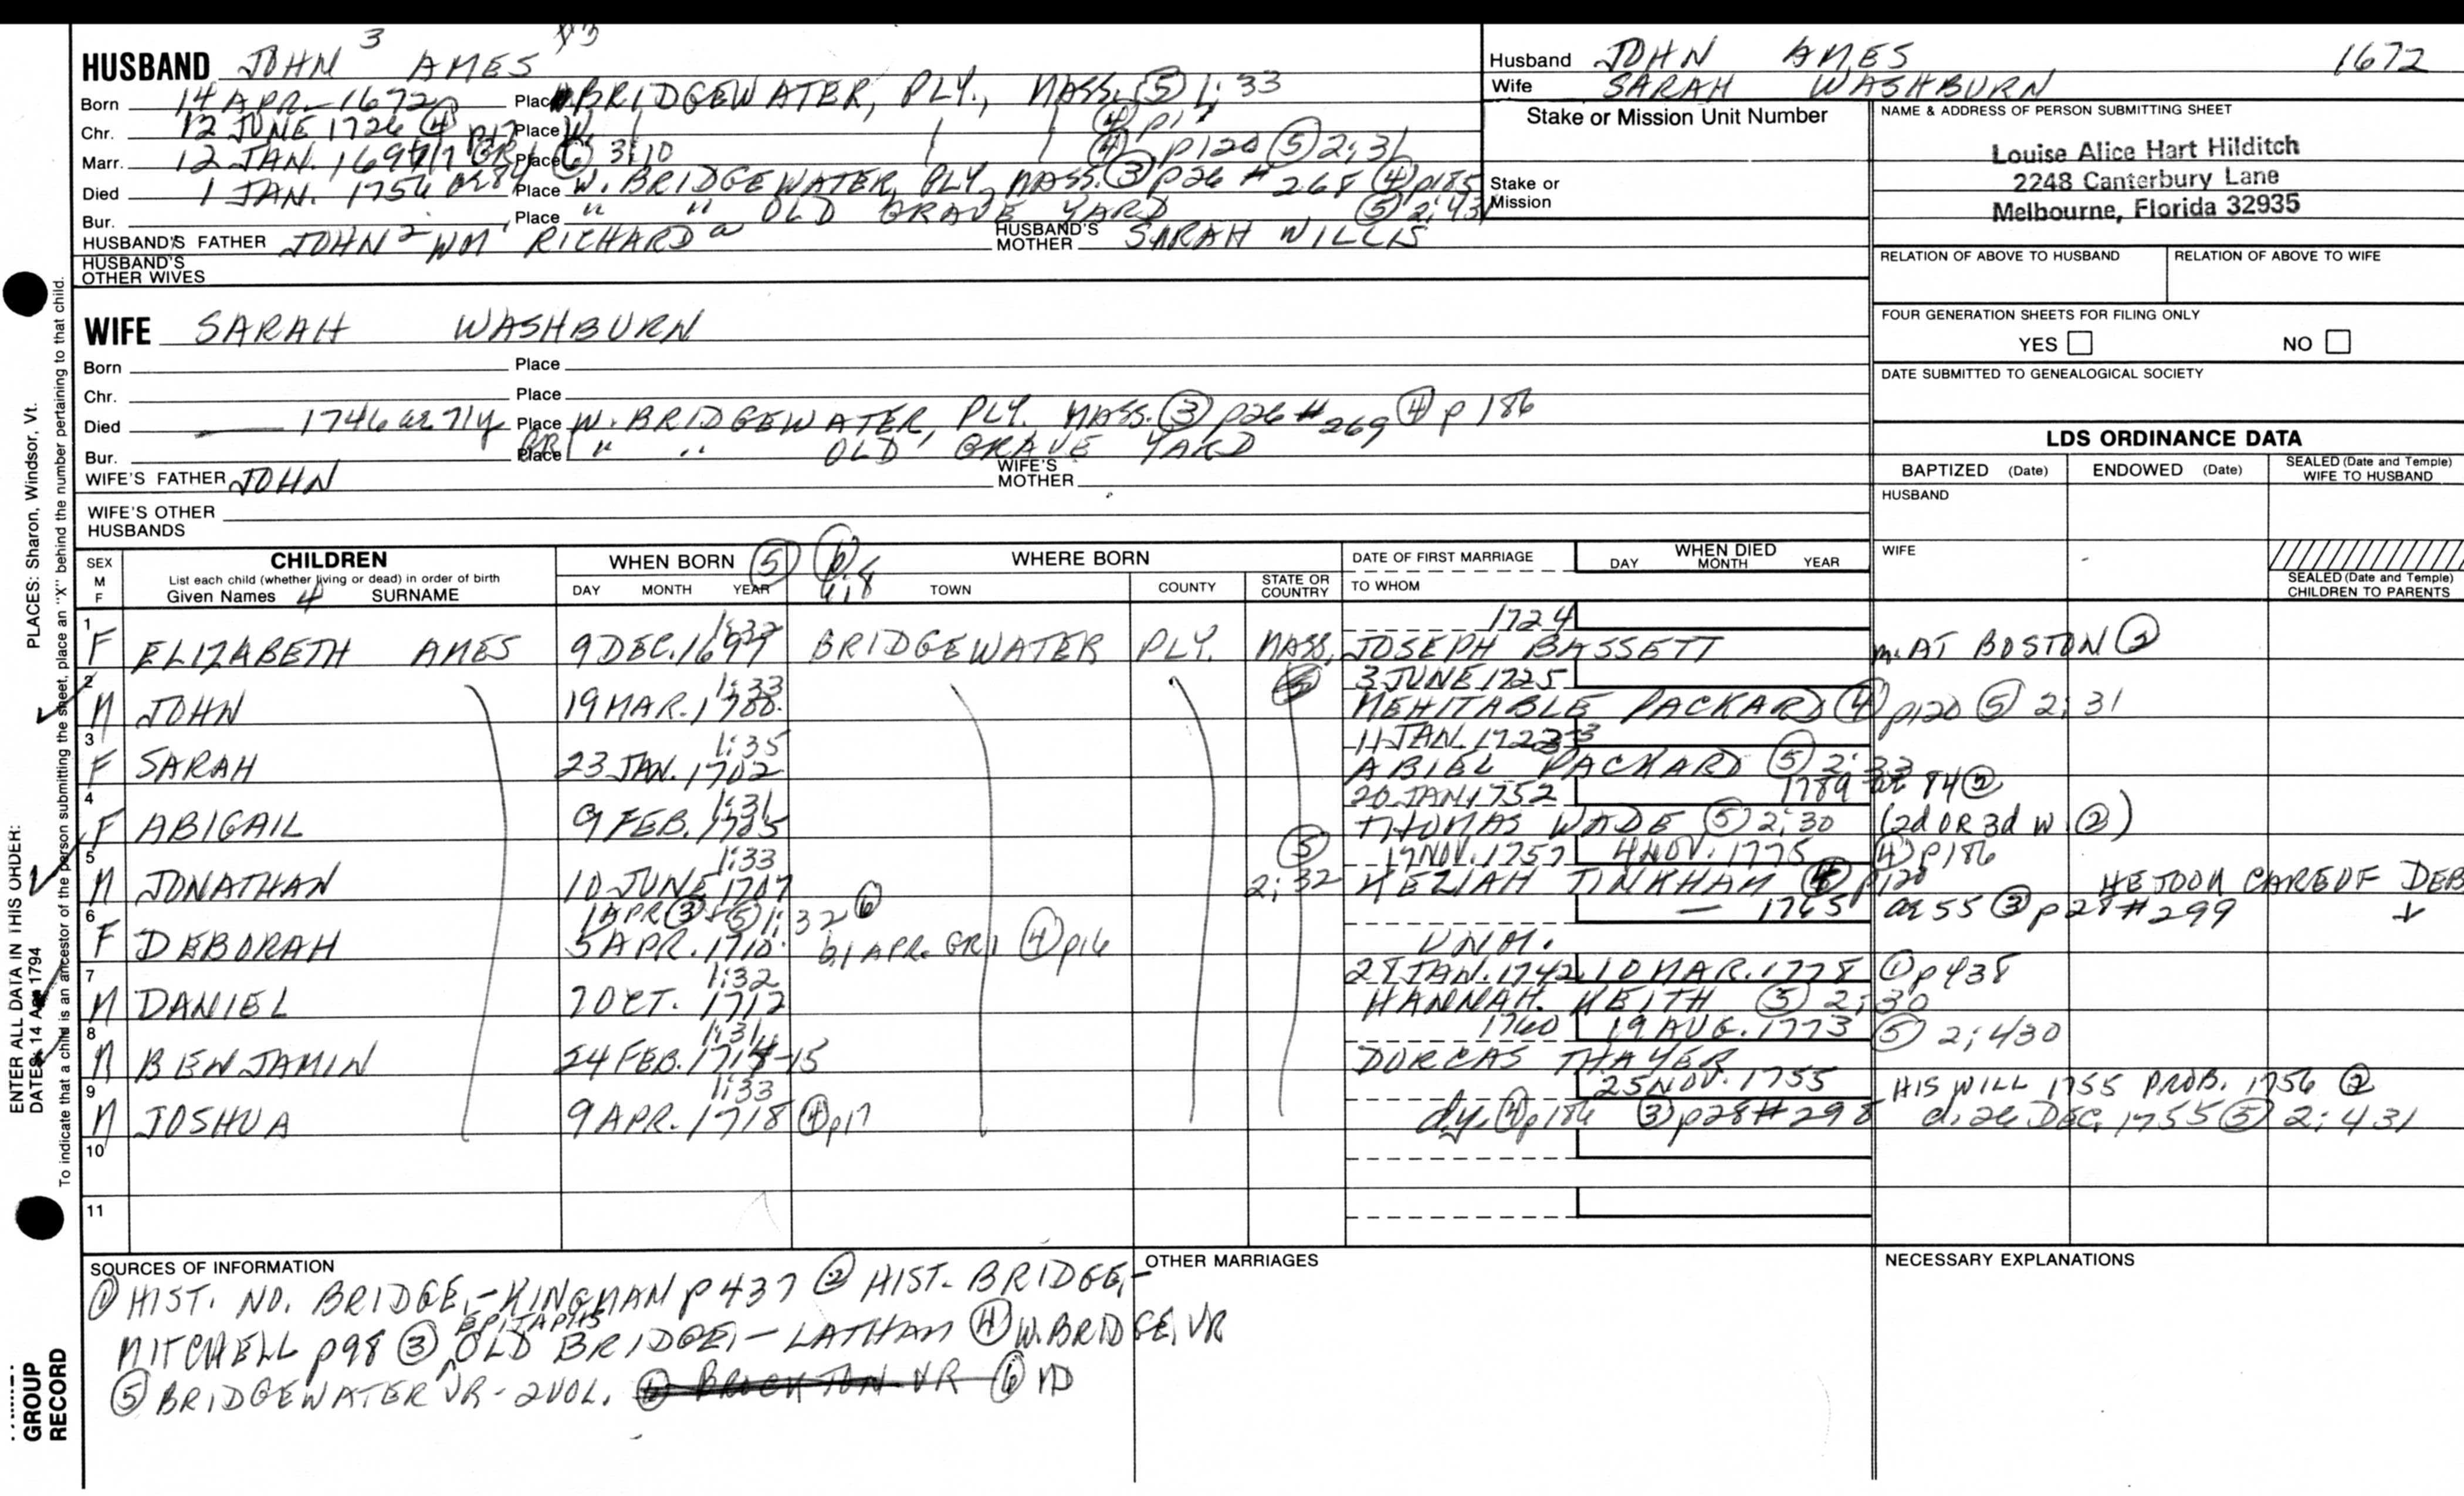 HUSBAND JOHN 3 AMES
Born 14 APR. 1672 Place BRIDGEWATER, PLY., MASS. (5) 1:33
Chr. 12 JUNE 1726 (4) p17 Place W. (4) p17
Marr. 12 JAN. 1697 Place (6) 3:10 (4) p120 (5) 2:31
Died 1 JAN. 1756 ae 84 Place W. BRIDGEWATER, PLY, MASS. (3) p26 # 268 (4) p185
Bur. Place " " OLD GRAVE YARD (5) 2:431
HUSBAND'S FATHER JOHN 2 WM 1 RICHARD a HUSBAND'S MOTHER SARAH WILLIS
HUSBAND'S OTHER WIVES
Husband JOHN AMES 1672
Wife SARAH WASHBURN
Stake or Mission Unit Number
Stake or Mission
NAME & ADDRESS OF PERSON SUBMITTING SHEET
Louise Alice Hart Hilditch
2248 Canterbury Lane
Melbourne, Florida 32935
RELATION OF ABOVE TO HUSBAND RELATION OF ABOVE TO WIFE
FOUR GENERATION SHEETS FOR FILING ONLY
YES NO
DATE SUBMITTED TO GENEALOGICAL SOCIETY
WIFE SARAH WASHBURN
Born Place
Chr. Place
Died — 1746 ae 71y Place W. BRIDGEWATER, PLY. MASS. (3) p26 # 269 (4) p186
Bur. Place GR1 " " OLD GRAVE YARD
WIFE'S FATHER JOHN WIFE'S MOTHER
WIFE'S OTHER HUSBANDS
LDS ORDINANCE DATA
BAPTIZED (Date) ENDOWED (Date) SEALED (Date and Temple) WIFE TO HUSBAND
HUSBAND
WIFE
SEALED (Date and Temple) CHILDREN TO PARENTS
SEX M F CHILDREN List each child (whether living or dead) in order of birth Given Names SURNAME
WHEN BORN (5) DAY MONTH YEAR
WHERE BORN TOWN COUNTY STATE OR COUNTRY
DATE OF FIRST MARRIAGE TO WHOM
WHEN DIED DAY MONTH YEAR
1 1:32 1724
F ELIZABETH AMES 9 DEC. 1697 BRIDGEWATER PLY. MASS. JOSEPH BASSETT m. AT BOSTON (2)
2 1:33 3 JUNE 1725
M JOHN 19 MAR. 1700 MEHITABLE PACKARD (4) p120 (5) 2:31
3 1:35 11 JAN. 1722-3
F SARAH 23 JAN. 1702 ABIEL PACKARD (5) 2:33
4 1:31 20 JAN 1752 1789 ae 84 (2)
F ABIGAIL 9 FEB. 1705 THOMAS WADE (5) 2:30 (2d OR 3d w. (2))
5 1:33 (5) 17 NOV. 1757 4 NOV. 1775 (4) p186
M JONATHAN 10 JUNE 1707 2:32 KEZIAH TINKHAM (4) p120 HE TOOK CARE OF DEB
6 1 APR (3) + (5) 1:32 (6) — 1765 ae 55 (3) p28 # 299
F DEBORAH 5 APR. 1710. b. 1 APR. GR1 (4) p16 UNM.
7 1:32 28 JAN. 1742 10 MAR. 1778 (1) p438
M DANIEL 7 OCT. 1712 HANNAH KEITH (5) 2:30
8 1:31 1760 19 AUG. 1773 (5) 2:430
M BENJAMIN 24 FEB. 1714-15 DORCAS THAYER
9 1:33 25 NOV. 1755 HIS WILL 1755 PROB. 1756 (2)
M JOSHUA 9 APR. 1718 (4) p17 d.y. (4) p186 (3) p28 # 298 d. 26 DEC. 1755 (5) 2:431
10
11
SOURCES OF INFORMATION
(1) HIST. NO. BRIDGE. - KINGMAN p437 (2) HIST. BRIDGE. -
MITCHELL p98 (3) EPITAPHS OLD BRIDGE. - LATHAM (4) W. BRIDGE. VR
(5) BRIDGEWATER VR - 2 VOL. (6) BROCKTON VR (6) MD
OTHER MARRIAGES
NECESSARY EXPLANATIONS
PLACES: Sharon, Windsor, Vt.
ENTER ALL DATA IN THIS ORDER:
DATES: 14 Apr 1794
To indicate that a child is an ancestor of the person submitting the sheet, place an "X" behind the number pertaining to that child.
GROUP
RECORD